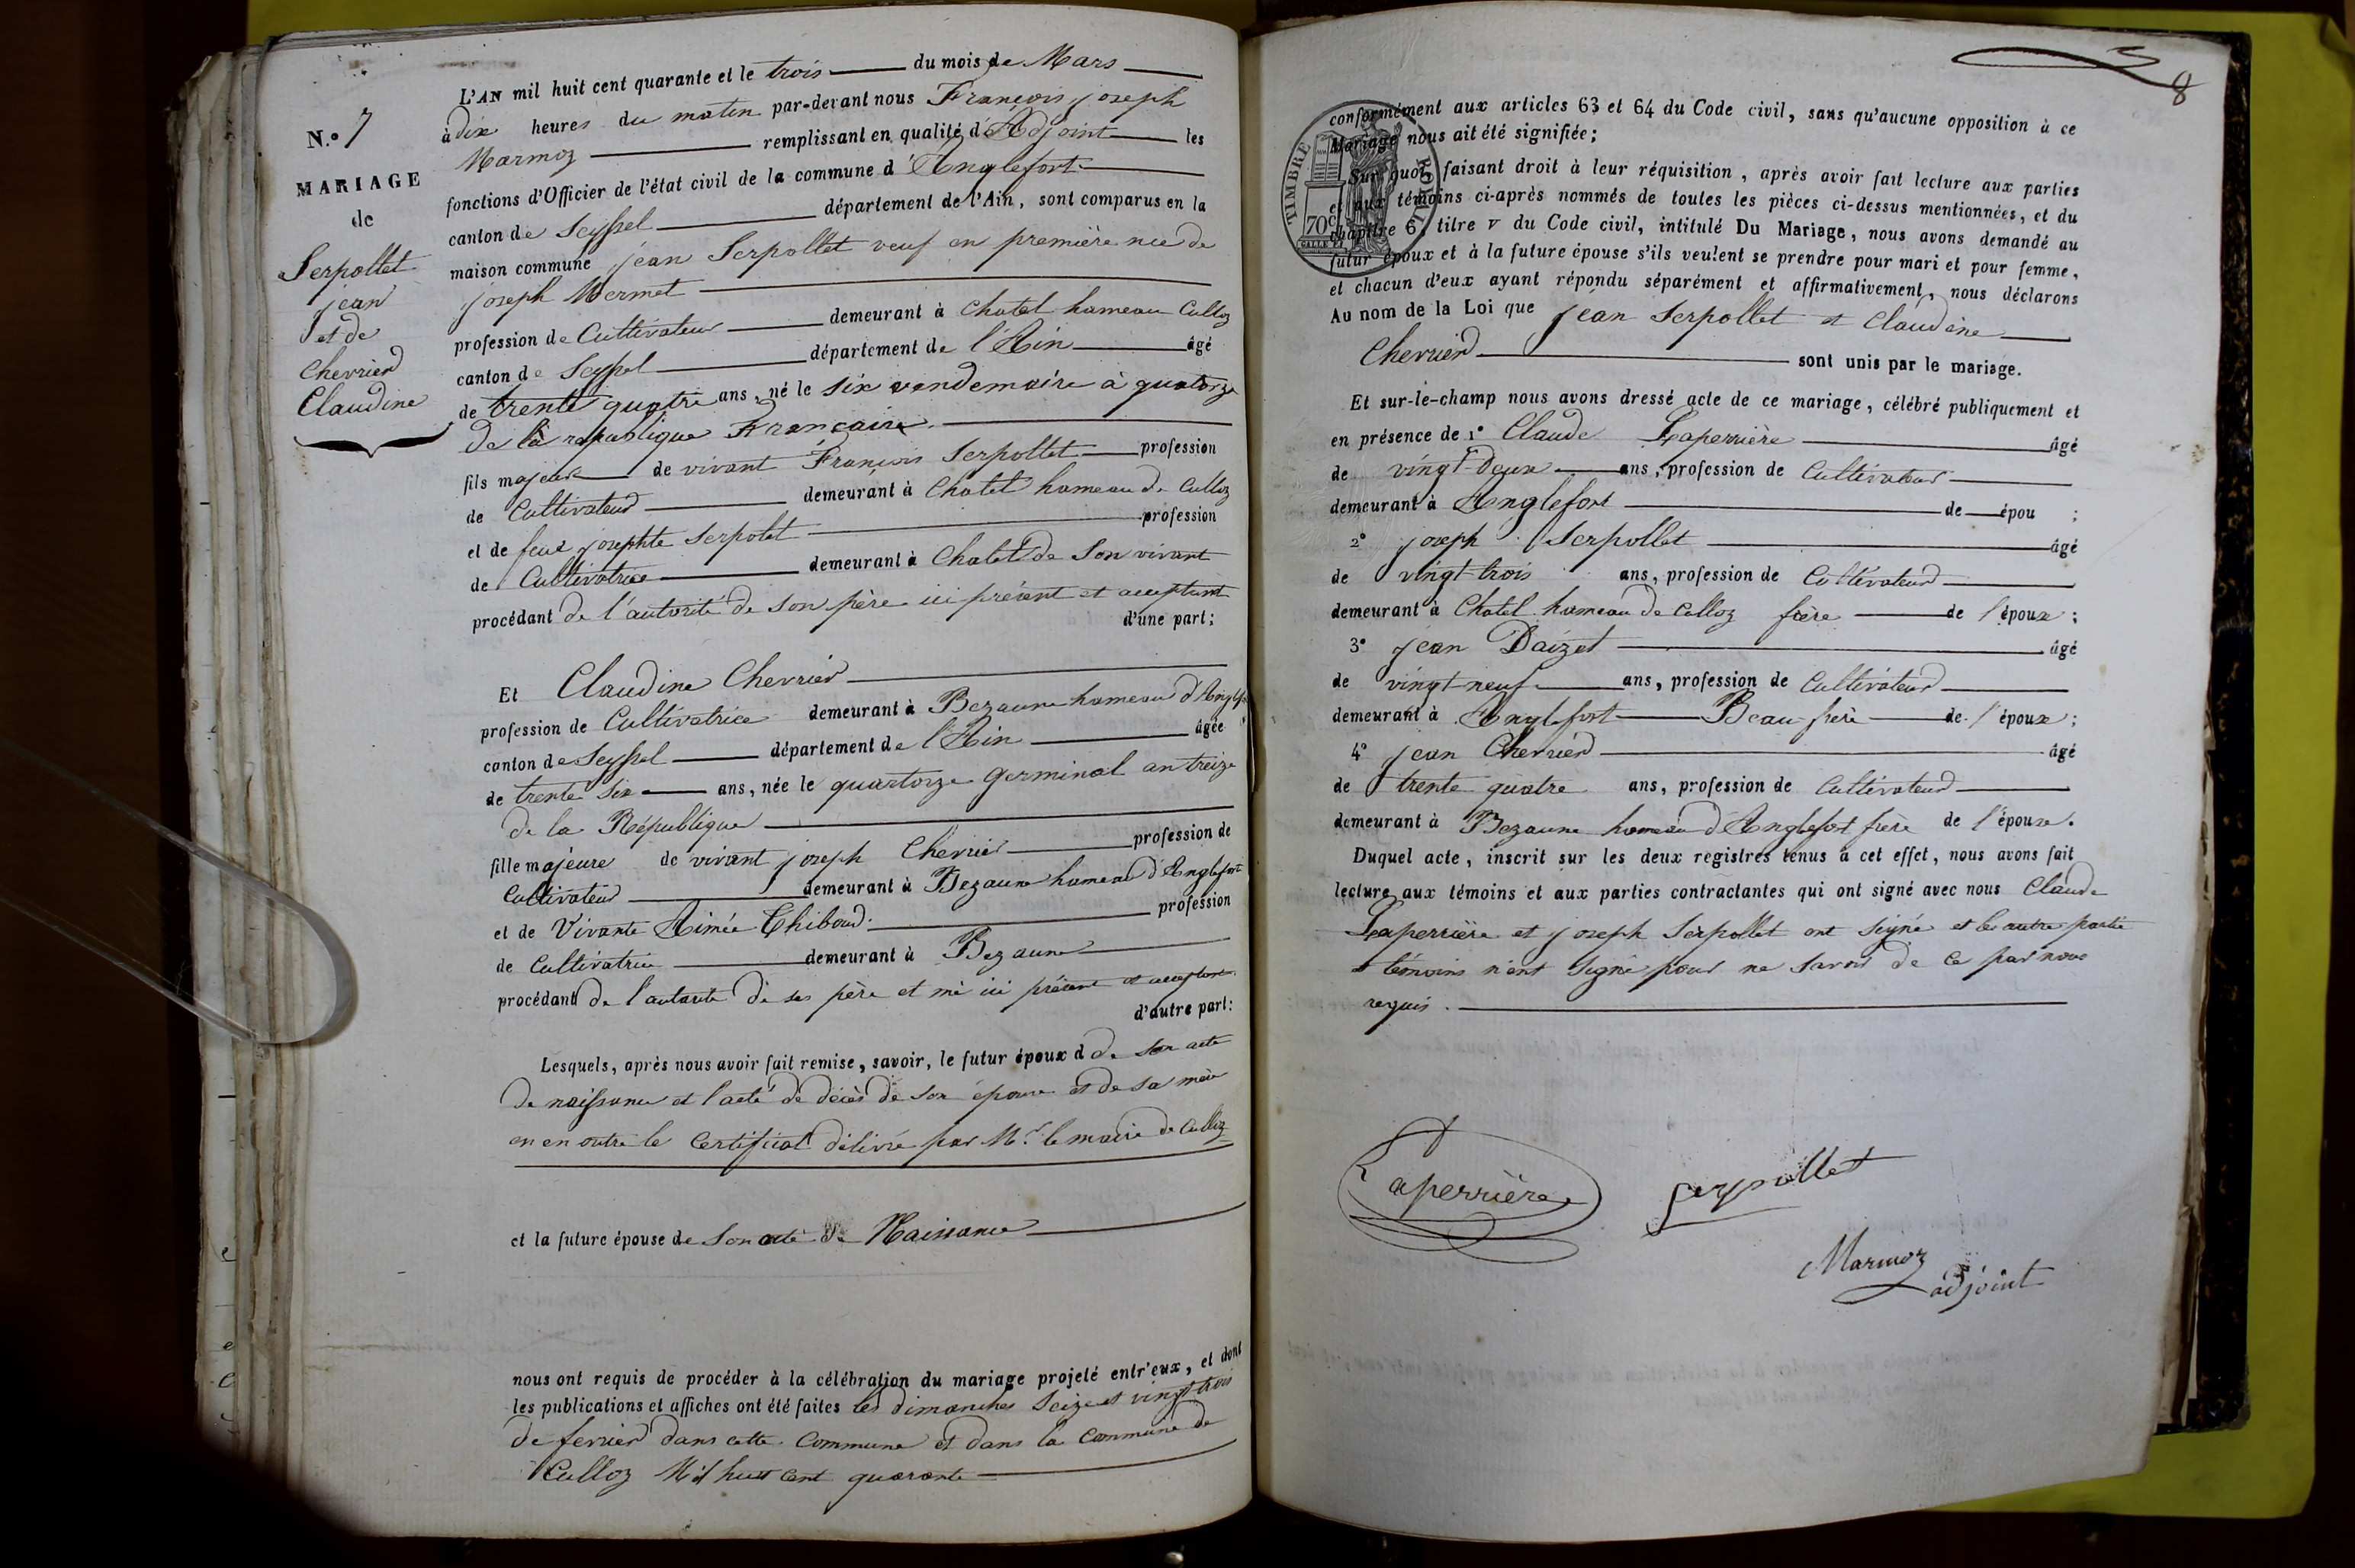 N.o 7
MARIAGE
de
Serpollet
jean
et de
Chevrier
Claudine
L'AN mil huit cent quarante et le trois du mois de Mars
à dix heures du matin par-devant nous François joseph
Marmoz remplissant en qualité d'Adjoint les
fonctions d'Officier de l'état civil de la commune d'Anglefort
canton de Seyssel département de l'Ain, sont comparus en la
maison commune jean Serpollet veuf en première nue de
joseph Mermet
profession de Cultivateur demeurant à Chatel hameau Culloz
canton de Seyssel département de l'Ain âgé
de trente quatre ans, né le six vendemaire à quatorze
de la republique Francaise
fils majeur de vivant François Serpollet profession
de Cultivateur demeurant à Chatel hameau de Culloz
et de feue josephte Serpolet profession
de Cultivatrice demeurant à Chatel de Son vivant
procédant de l'autorité de son père ici présent et acceptant
d'une part;
Et Claudine Chevrier
profession de Cultivatrice demeurant à Bezaune hameau d'Anglef
canton de Seyssel département de l'Ain âgée
de trente six ans, née le quartorze Germinal an treize
de la République
fille majeure de vivant joseph Chevrier profession de
Cultivateur demeurant à Bezaune hameau d'Anglefort
et de Vivante Aimée Thiboud profession
de Cultivatrice demeurant à Bezaune
procédant de l'autorité de ses père et mè ici présent et acceptant
d'autre part:
Lesquels, après nous avoir fait remise, savoir, le futur époux d de son acte
de naissance et l'acte de décès de son épouse et de sa mère
en en outre le Certificat délivré par Mr. le maire de Culloz
et la future épouse de Son acte de Naissance
nous ont requis de procéder à la célébration du mariage projeté entr'eux, et dont
les publications et affiches ont été faites les dimanches Seize et vingt trois
de fevrier dans cette Commune et dans la Commune de
Culloz Mil huit cent quarante
8
TIMBRE ROYAL
70c
conformément aux articles 63 et 64 du Code civil, sans qu'aucune opposition à ce
Mariage nous ait été signifiée;
Sur quoi faisant droit à leur réquisition, après avoir fait lecture aux parties
et aux témoins ci-après nommés de toutes les pièces ci-dessus mentionnées, et du
chapitre 6, titre v du Code civil, intitulé Du Mariage, nous avons demandé au
futur époux et à la future épouse s'ils veulent se prendre pour mari et pour femme,
et chacun d'eux ayant répondu séparément et affirmativement, nous déclarons
Au nom de la Loi que jean Serpollet et Claudine
Chevrier sont unis par le mariage.
Et sur-le-champ nous avons dressé acte de ce mariage, célébré publiquement et
en présence de 1° Claude Laperrière âgé
de vingt-deux ans, profession de Cultivateur
demeurant à Anglefort de épou ;
2° joseph Serpollet âgé
de vingt trois ans, profession de Cultivateur
demeurant à Chatel hameau de Culloz frère de l'époux;
3° jean Daizet âgé
de vingt neuf ans, profession de Cultivateur
demeurant à Anglefort Beau-frère de l'époux;
4° jean Chevrier âgé
de trente quatre ans, profession de Cultivateur
demeurant à Bezaune hameau d'Anglefort frère de l'épouse.
Duquel acte, inscrit sur les deux registres tenus à cet effet, nous avons fait
lecture aux témoins et aux parties contractantes qui ont signé avec nous Claude
Laperrière et joseph Serpollet ont signé et les autre partie
et témoins n'ont signé pour ne savoir de ce par nous
requis.
Laperrière
Serpollet
Marmoz
adjoint